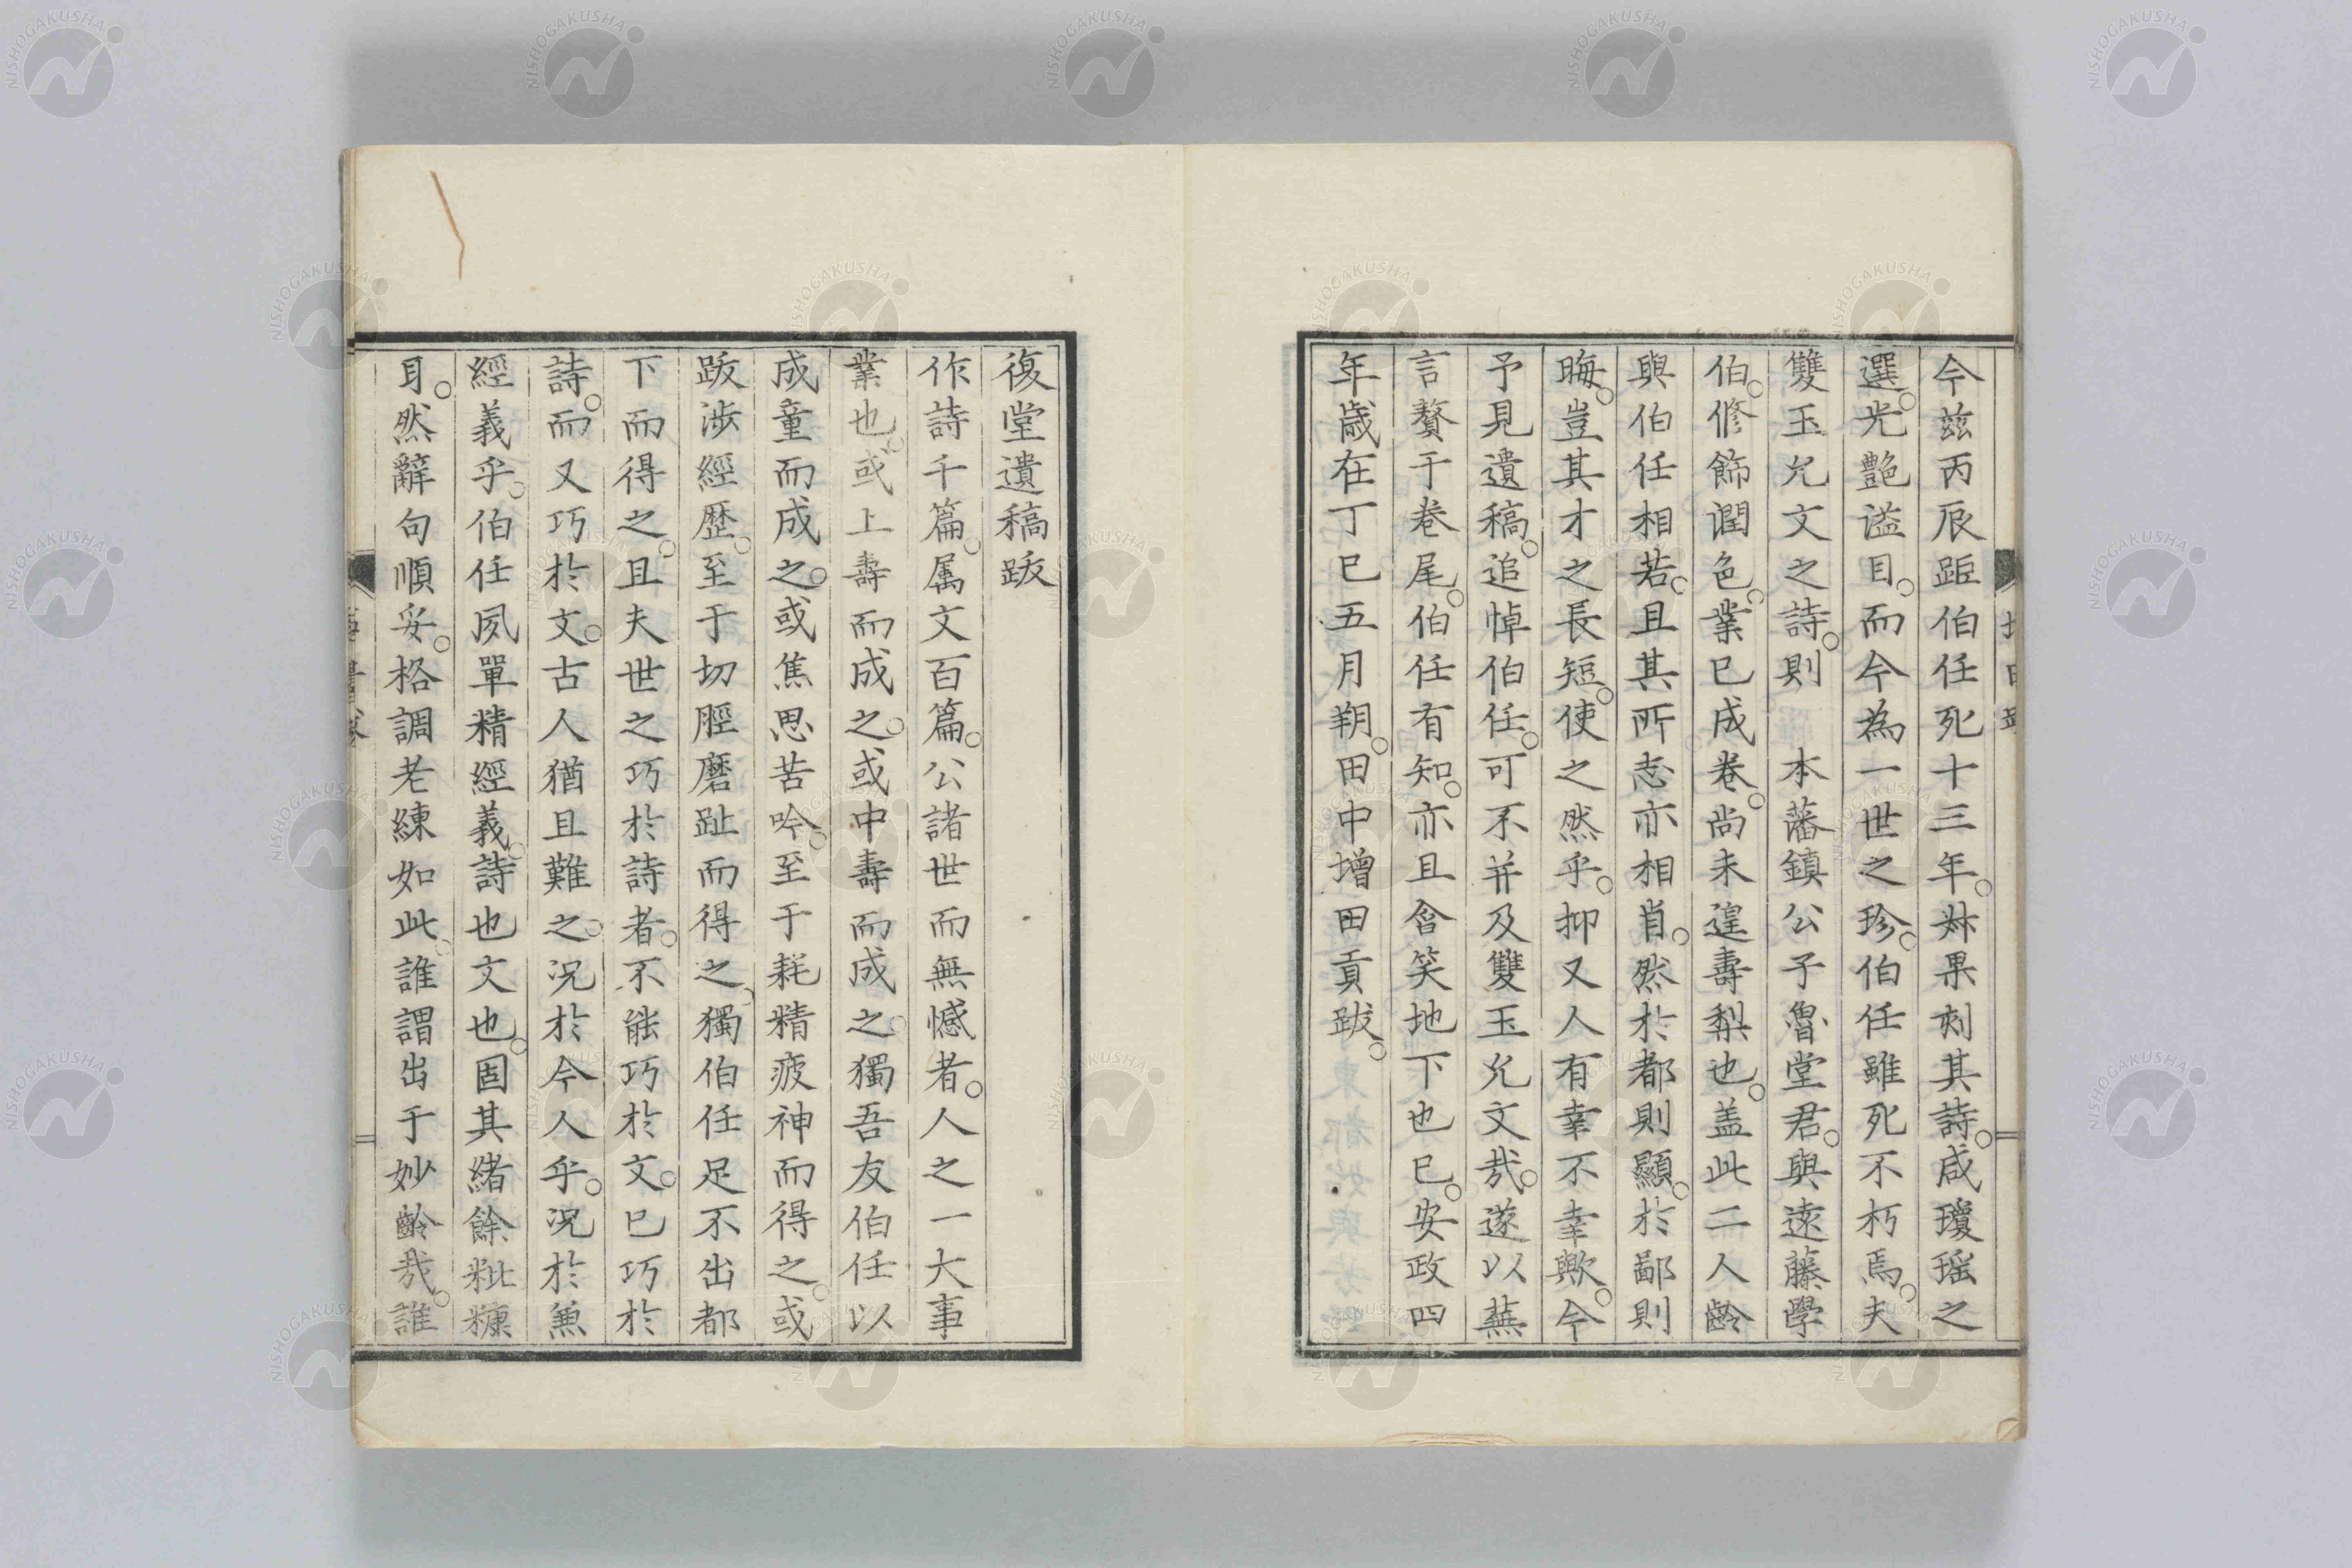 今茲丙辰距伯任死十三年。炑果刻其詩。咸瓊瑶之
選。光艶溢目。而今為一世之珍。伯任雖死不朽焉。夫
雙玉允文之詩。則　本藩鎮公子魯堂君。與遠藤學
伯。修飾潤色。業已成卷。尚未遑壽梨也。盖此二人齡
與伯任相若。且其所志亦相肖。然於都則顯。於鄙則
晦。豈其才之長短。使之然乎。抑又人有幸不幸歟。今
予見遺稿。追悼伯任。可不并及雙玉允文哉。遂以蕪
言贅于卷尾。伯任有知。亦且含笑地下也已。安政四
年歳在丁巳五月朔。田中增田貢跋。
復堂遺稿跋
作詩千篇。属文百篇。公諸世而無憾者。人之一大事
業也。或上壽而成之。或中壽而成之。獨吾友伯任以
成童而成之。或焦思苦吟。至于耗精疲神而得之。或
跋涉經歴。至于切脛磨趾而得之。獨伯任足不出都
下而得之。且夫世之巧於詩者。不能巧於文。已巧於
詩。而又巧於文。古人猶且難之。况於今人乎。况於兼
經義乎。伯任夙單精經義。詩也文也。固其緒餘粃糠
耳。然辭句順妥。格調老練如此。誰謂出于妙齡哉。誰
NISHOGAKUSHA